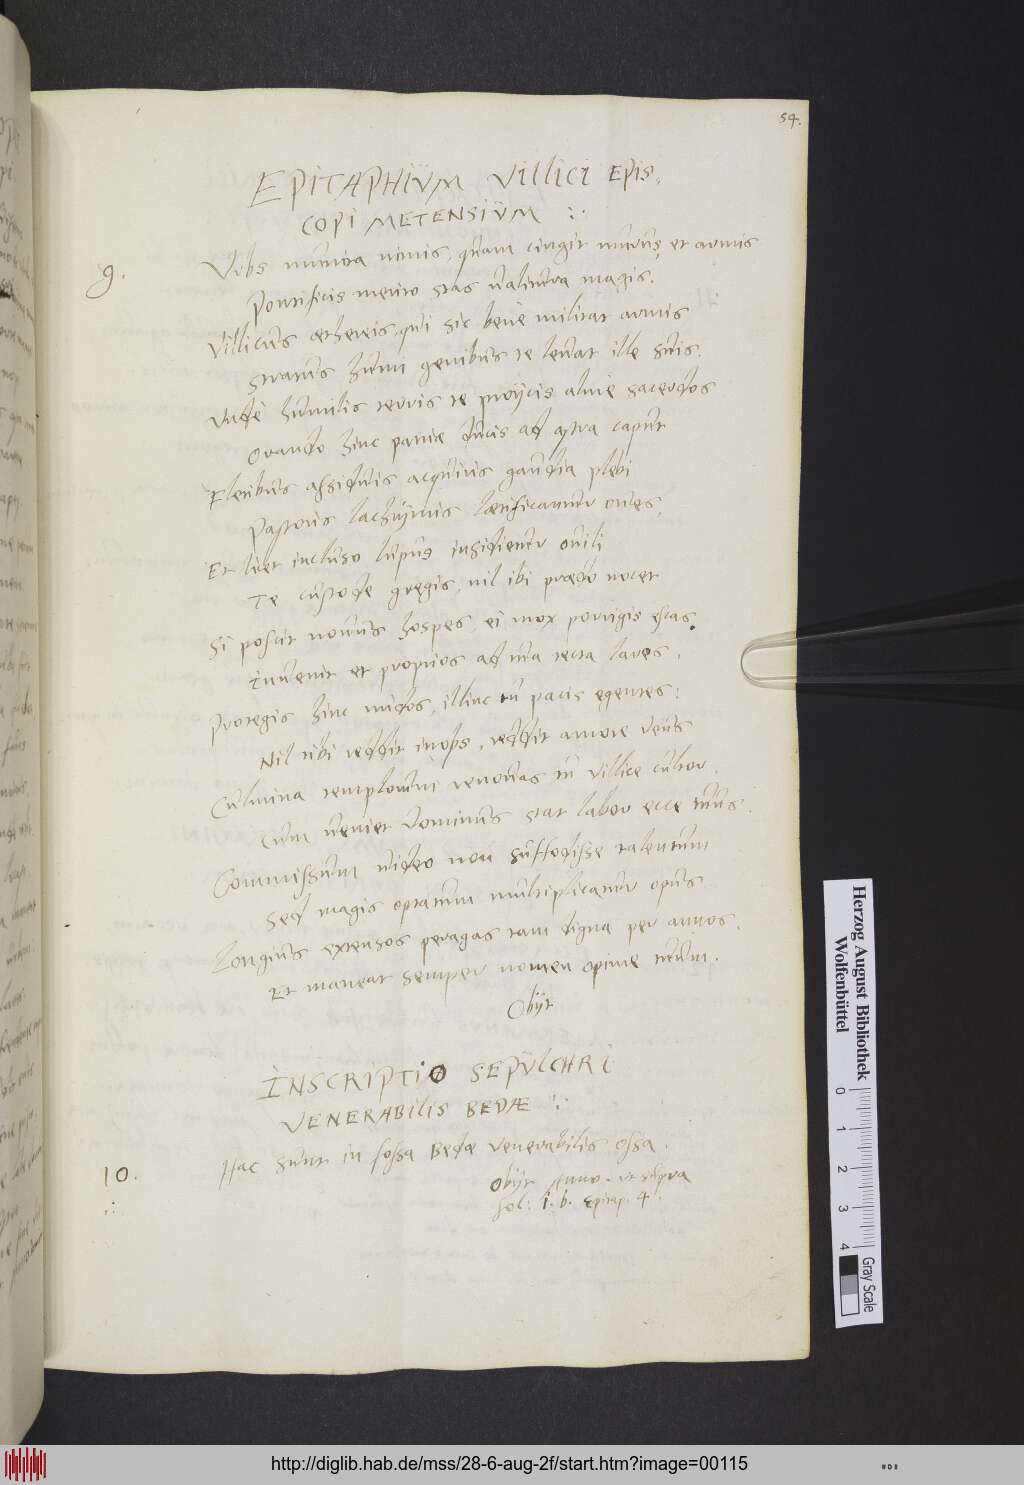 54.
EPITAPHIUM Villici EPIS,
COPI METENSIUM
9.
Urbs munita nimis, quam cingit murus, et amnis
Pontificis merito stas ualitura magis.
Villicus aethereis, qui sic bene militat armis
Stratus humi genibus te leuat ille suis.
Unde humilis terris te proijcis alme sacerdos
Orando hinc patriae ducis ad astra caput
Fletibus assiduis acquiris gaudia plebi
Pastoris lachrymis laetificantur oues,
Et licet incluso lupus insidietur ouili
Te custode gregis, nil ibi praedo nocet
Si poscit nouus hospes, ei mox porrigis escas
inuenit et proprios ad tua tecta lares.
Protegis hinc nudos, illinc tu pacis egentes:
Nil tibi reddit inops, reddit amore Deus
Culmina templorum renouas tu Villice cultor.
Cum ueniet Dominus stat labor ecce tuus.
Commissum uideo non suffodisse talentum
Sed magis optatum multiplicatur opus
Longius extensos peragas tam digna per annos.
Et maneat semper nomen opime tuum.
Obijt
INSCRIPTIO SEPULCHRI
VENERABILIS BEDAE
10.
Hac sunt in fossa Bedae Venerabilis ossa.
Obijt Anno. ut supra
fol: 1. b. Epitap. 4.
Herzog August Bibliothek
Wolfenbüttel
0 1 2 3 4
Gray Scale
http://diglib.hab.de/mss/28-6-aug-2f/start.htm?image=00115